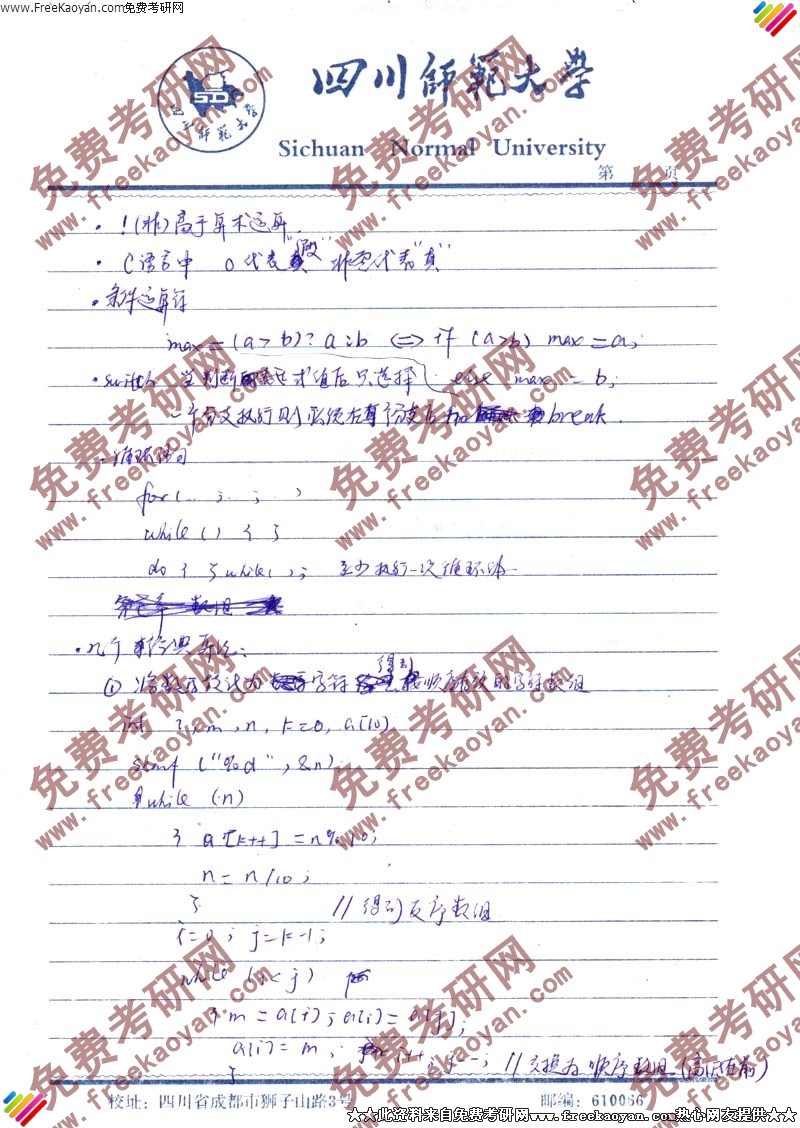 www.FreeKaoyan.com免费考研网
四川師範大學
Sichuan Normal University
第 页
· !(非)高于算术运算.
· C语言中 0代表"假" 非零代表"真"
· 条件运算符
max = (a > b)? a : b <=> if (a>b) max = a;
else max = b;
· switch 当判断 求值后只选择
一个分支执行则必须在每个分支后加 break.
· 循环语句
for( ; ; )
while ( ) { }
do { } while( ); 至少执行一次循环体
· 几个经典算法:
① 将数字转换为字符 得到按顺序存放的字符数组
int i, m, n, k=0, a[10]
scanf ("%d", &n)
while (n)
{ a[k++] = n%10;
n = n/10;
} // 得到反序数组
i=0; j=k-1;
while (i<j)
{ m = a[i]; a[i] = a[j];
a[j] = m; i++, j--; // 交换为顺序数组 (高位在前)
}
校址: 四川省成都市狮子山路3号 邮编: 610066
★★此资料来自免费考研网www.freekaoyan.com热心网友提供★★
免费考研网
www.freekaoyan.com